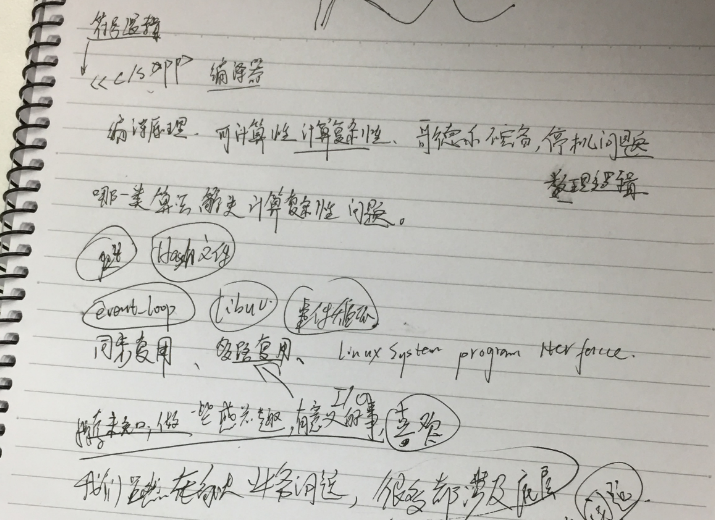 符号逻辑
<<c/s app>> 编译器
编译原理、可计算性 计算复杂性、哥德尔不完备,停机问题
数理逻辑
哪一类算法解决计算复杂性问题。
Hash 文件
event_loop libuv 事件循环
同步复用、多路复用、Linux System program Interface.
I/O
做一些感兴趣,有意义的事,
我们虽然在 业务 ,很多都涉及底层